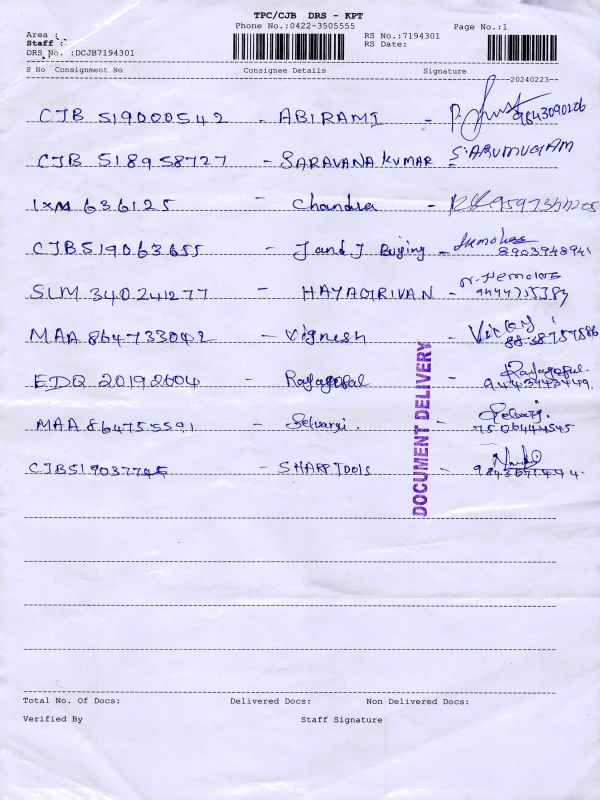 TPC/CJB DRS - KPT
Phone No.:0422-3505555
Page No.:1
Area :
RS No.:7194301
Staff :
RS Date:
DRS No. :DCJB7194301
S No Consignment No Consignee Details Signature
20240223
CJB 519000542 - ABIRAMI - 9843090206
CJB 518958727 - SARAVANA KUMAR - S. ARUMUGAM
IXM 636125 - Chandra -
CJB519063655 - J and J Buying - 8903948941
SLM 340241277 - HAYAGRIVAN -
MAA 864733042 - Vignesh - Vicky
8838757586
EDQ 20192604 - Rajagopal - Rajagopal.
9443743449.
MAA 864755591 - Selvaraj. - Selvaraj.
7506444545
CJB519037745 - SHARP TOOLS -
DOCUMENT DELIVERY
Total No. Of Docs: Delivered Docs: Non Delivered Docs:
Verified By Staff Signature